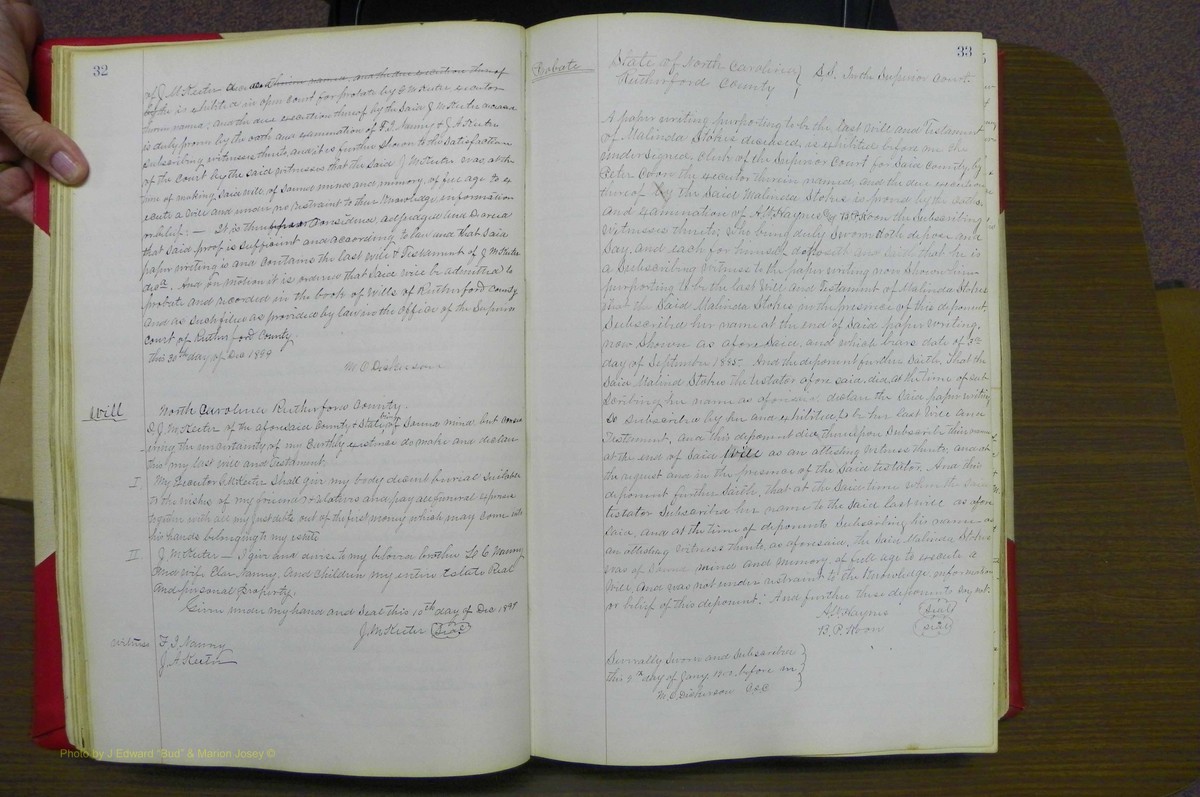 32
of J. M. Keeter
by the is exhibited in open Court for probate by E. Keeter, executor
therein named; and the due execution thereof by the said J. M. Keeter deceased
is duly proven by the oath and examination of F. I. Nanny & J. A. Keeter
subscribing witnesses thereto, and it is further shown to the satisfaction
of the Court by the said witnesses that the said J. M. Keeter was, at the
time of making said will, of sound mind and memory, of full age to ex
ecute a will and under no restraint to their Knowledge information
or belief: — It is therefore Considered, adjudged and Decreed
that said proof is sufficient and according to law and that said
paper writing is and Contains the last will & Testament of J. M. Keeter
decd. And on motion it is ordered that said will be admitted to
probate and recorded in the book of Wills of Rutherford County
and as such filed as provided by law in the office of the Superior
Court of Rutherford County.
This 30th day of Dec 1899
M. O. Dickerson
Will
North Carolina Rutherford County.
I, J. M. Keeter of the aforesaid County & State being of Sound mind, but consid
ering the uncertainty of my Earthly existence do make and declare
this my last will and testament.
I
My Executor Keeter shall give my body decent burial suitable
to the wishes of my friends & relations and pay all funeral expenses
together with all my just debts out of the first money which may come into
his hands belonging to my estate
II
J. M. Keeter — I give and devise to my beloved brother L. C. Nanny
and wife Nanny, and Children my entire Estate Real
and personal Property.
Given under my hand and Seal this 10th day of Dec 1899
J. M. Keeter (Seal)
Witness F. I. Nanny
J. A. Keeter
33
Probate
State of North Carolina } S.S. In the Superior Court.
Rutherford County
A paper writing purporting to be the last will and Testament
of Malinda Stokes deceased, is exhibited before me the
undersigned, Clerk of the Superior Court for said County, by
Peter Koon the executor therein named, and the due execution
thereof by the said Malinda Stokes is proved by the oath,
and examination of A. W. Haynes & B. P. Koon the Subscribing
witnesses thereto; who being duly Sworn doth depose and
Say, and each for himself deposeth and saith that he is
a Subscribing witness to the paper writing now Shown him
purporting to be the last Will and Testament of Malinda Stokes
that the Said Malinda Stokes in the presence of this deponent,
Subscribed her name at the end of Said paper writing,
now Shown as aforesaid, and which bears date of 3rd
day of September 1895. And the deponent further Saith, that the
Said Malinda Stokes the testator aforesaid, did, at the time of sub
scribing her name as aforesaid, declare the Said paper writing
So Subscribed by her and exhibited, to be her last Will and
Testament, and this deponent did, thereupon Subscribe his name
at the end of Said Will as an attesting witness thereto, and at
the request and in the presence of the Said testator. And this
deponent further Saith, that at the Said time when the Said
testator Subscribed her name to the Said last will as afore
Said, and at the time of deponents Subscribing his name as
an attesting witness thereto, as aforesaid, the Said Malinda Stokes
was of Sound mind and memory, of full age to execute a
Will, And was not under restraint to the Knowledge, information
or belief of this deponent: And further these deponents say not.
A. W. Haynes (Seal)
B. P. Koon (Seal)
Severally Sworn and Subscribed
this 9th day of Jany 1900, before me
M. O. Dickerson C.S.C.
Photo by J Edward "Bud" & Marion Josey ©